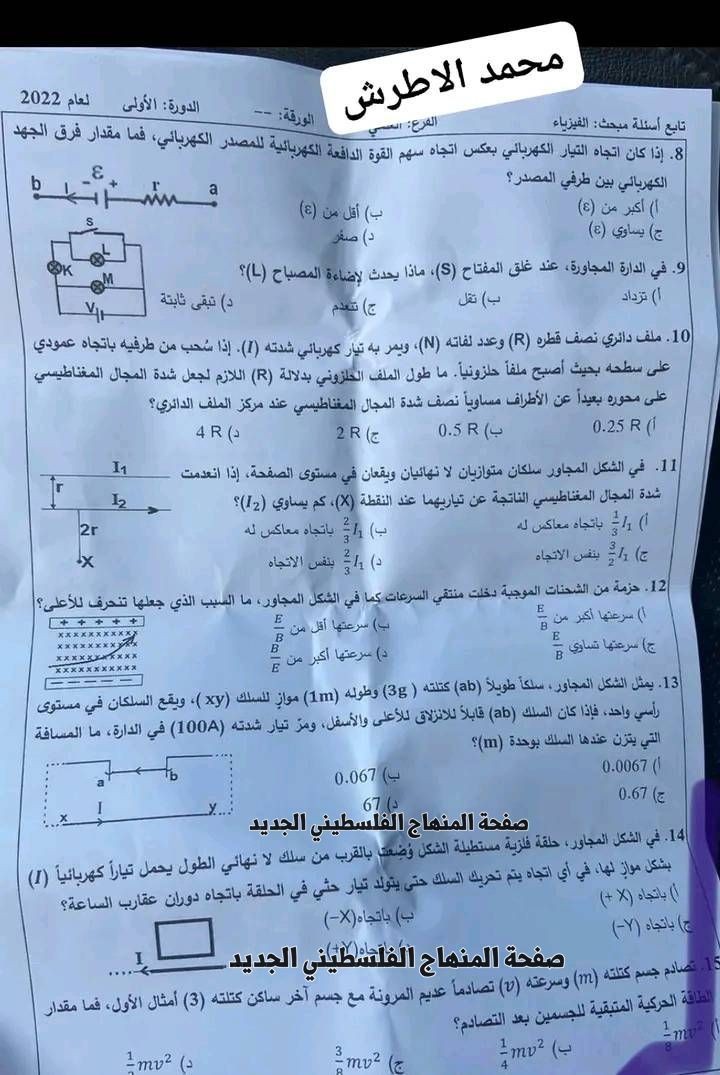 محمد الاطرش
تابع أسئلة مبحث: الفيزياء الفرع: الورقة: -- الدورة: الأولى لعام 2022
8. إذا كان اتجاه التيار الكهربائي بعكس اتجاه سهم القوة الدافعة الكهربائية للمصدر الكهربائي، فما مقدار فرق الجهد
الكهربائي بين طرفي المصدر؟
b I - ε + r a
أ) أكبر من (ε) ب) أقل من (ε)
ج) يساوي (ε) د) صفر
S L K M V
9. في الدارة المجاورة، عند غلق المفتاح (S)، ماذا يحدث لإضاءة المصباح (L)؟
أ) تزداد ب) تقل ج) تنعدم د) تبقى ثابتة
10. ملف دائري نصف قطره (R) وعدد لفاته (N)، ويمر به تيار كهربائي شدته (I). إذا سُحب من طرفيه باتجاه عمودي
على سطحه بحيث أصبح ملفاً حلزونياً. ما طول الملف الحلزوني بدلالة (R) اللازم لجعل شدة المجال المغناطيسي
على محوره بعيداً عن الأطراف مساوياً نصف شدة المجال المغناطيسي عند مركز الملف الدائري؟
أ) 0.25 R ب) 0.5 R ج) 2 R د) 4 R
11. في الشكل المجاور سلكان متوازيان لا نهائيان ويقعان في مستوى الصفحة، إذا انعدمت
شدة المجال المغناطيسي الناتجة عن تياريهما عند النقطة (X)، كم يساوي (I₂)؟
I₁ r I₂ 2r X
أ) 1/3 I₁ باتجاه معاكس له ب) 2/3 I₁ باتجاه معاكس له
ج) 3/2 I₁ بنفس الاتجاه د) 2/3 I₁ بنفس الاتجاه
12. حزمة من الشحنات الموجبة دخلت منتقي السرعات كما في الشكل المجاور، ما السبب الذي جعلها تنحرف للأعلى؟
أ) سرعتها أكبر من E/B ب) سرعتها أقل من E/B
ج) سرعتها تساوي E/B د) سرعتها أكبر من B/E
13. يمثل الشكل المجاور، سلكاً طويلاً (ab) كتلته (3g) وطوله (1m) موازٍ للسلك (xy)، ويقع السلكان في مستوى
رأسي واحد، فإذا كان السلك (ab) قابلاً للانزلاق للأعلى والأسفل، ومرّ تيار شدته (100A) في الدارة، ما المسافة
التي يتزن عندها السلك بوحدة (m)؟
أ) 0.0067 ب) 0.067
ج) 0.67 د) 67
a b x I y
صفحة المنهاج الفلسطيني الجديد
14. في الشكل المجاور، حلقة فلزية مستطيلة الشكل وُضعت بالقرب من سلك لا نهائي الطول يحمل تياراً كهربائياً (I)
بشكل موازٍ لها، في أي اتجاه يتم تحريك السلك حتى يتولد تيار حثي في الحلقة باتجاه دوران عقارب الساعة؟
أ) باتجاه (+X) ب) باتجاه (−X)
ج) باتجاه (−Y)
I
صفحة المنهاج الفلسطيني الجديد
15. تصادم جسم كتلته (m) وسرعته (v) تصادماً عديم المرونة مع جسم آخر ساكن كتلته (3) أمثال الأول، فما مقدار
الطاقة الحركية المتبقية للجسمين بعد التصادم؟
أ) 1/8 mv² ب) 1/4 mv² ج) 3/8 mv² د) 1/2 mv²